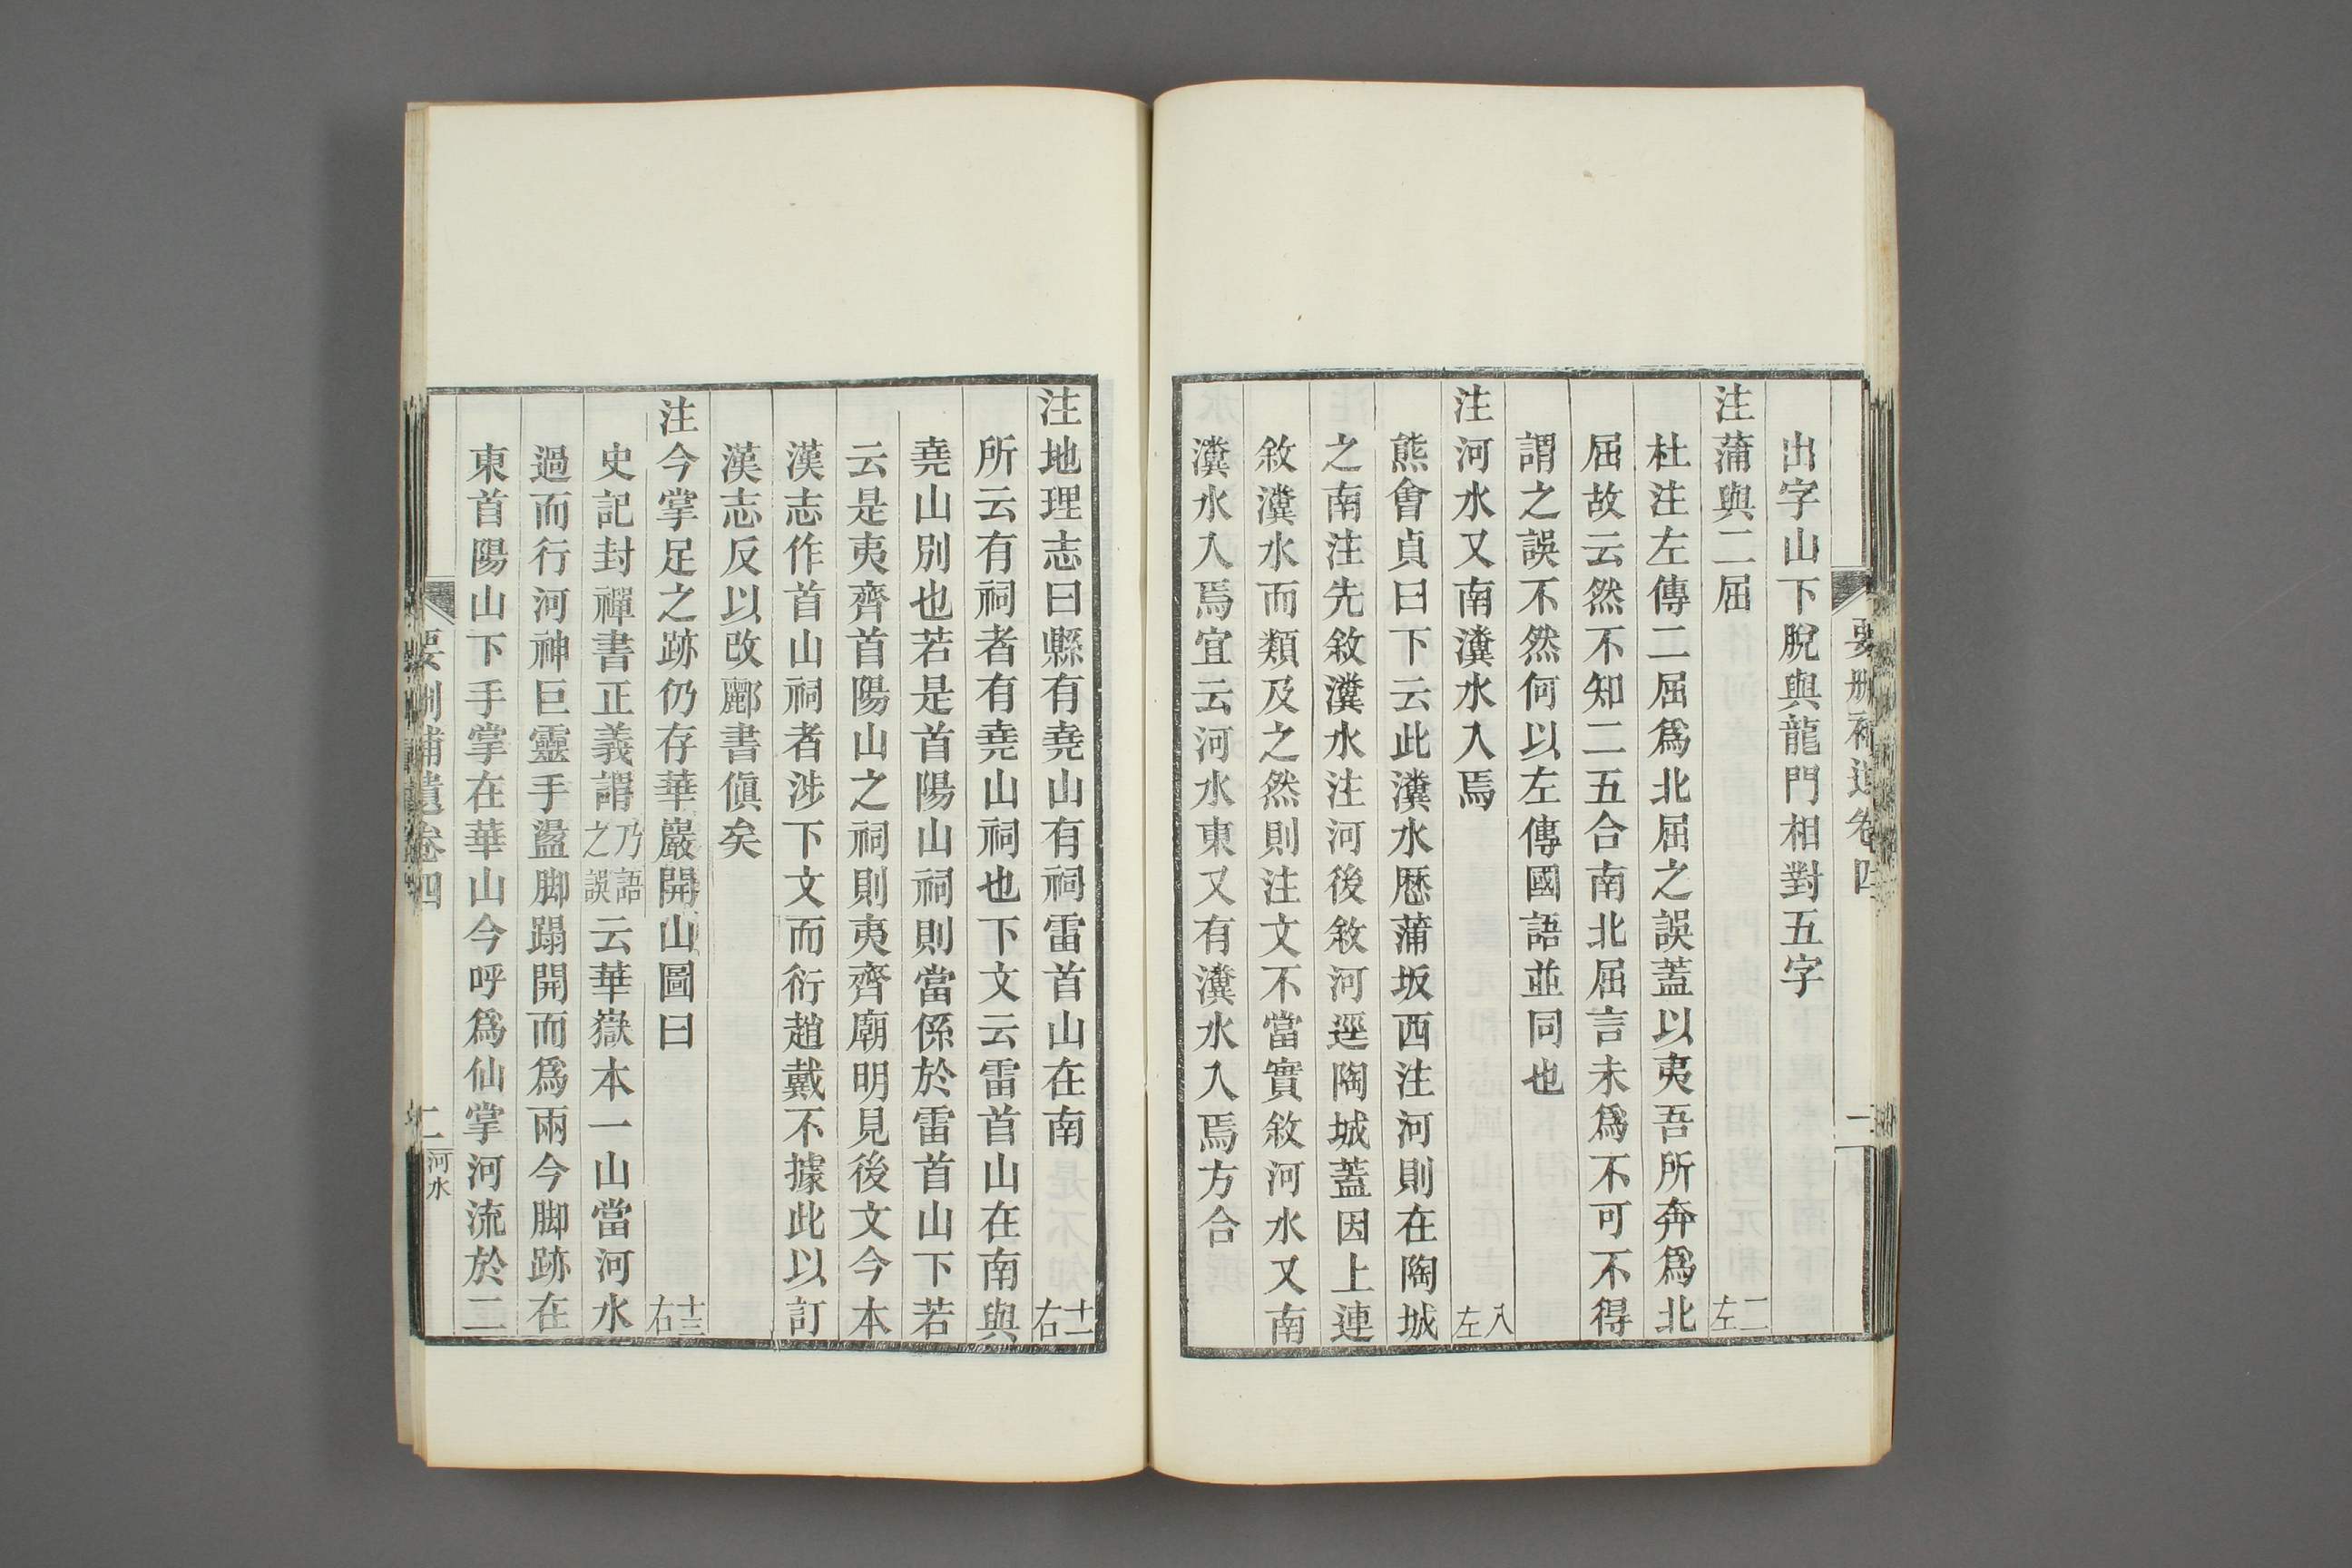 要刪補遺卷四
一
出字山下脫與龍門相對五字
注蒲與二屈
二左
杜注左傳二屈爲北屈之誤蓋以夷吾所奔爲北
屈故云然不知二五合南北屈言未爲不可不得
謂之誤不然何以左傳國語並同也
注河水又南瀵水入焉
八左
熊會貞曰下云此瀵水厯蒲坂西注河則在陶城
之南注先敘瀵水注河後敘河逕陶城蓋因上連
敘瀵水而類及之然則注文不當實敘河水又南
瀵水入焉宜云河水東又有瀵水入焉方合
注地理志曰縣有堯山有祠雷首山在南
十一右
所云有祠者有堯山祠也下文云雷首山在南與
堯山別也若是首陽山祠則當係於雷首山下若
云是夷齊首陽山之祠則夷齊廟明見後文今本
漢志作首山祠者涉下文而衍趙戴不據此以訂
漢志反以改酈書傎矣
注今掌足之跡仍存華巖開山圖曰
十三右
史記封禪書正義謂乃語之誤云華嶽本一山當河水
過而行河神巨靈手盪脚蹋開而爲兩今脚跡在
東首陽山下手掌在華山今呼爲仙掌河流於二
要刪補遺卷四
二
河水